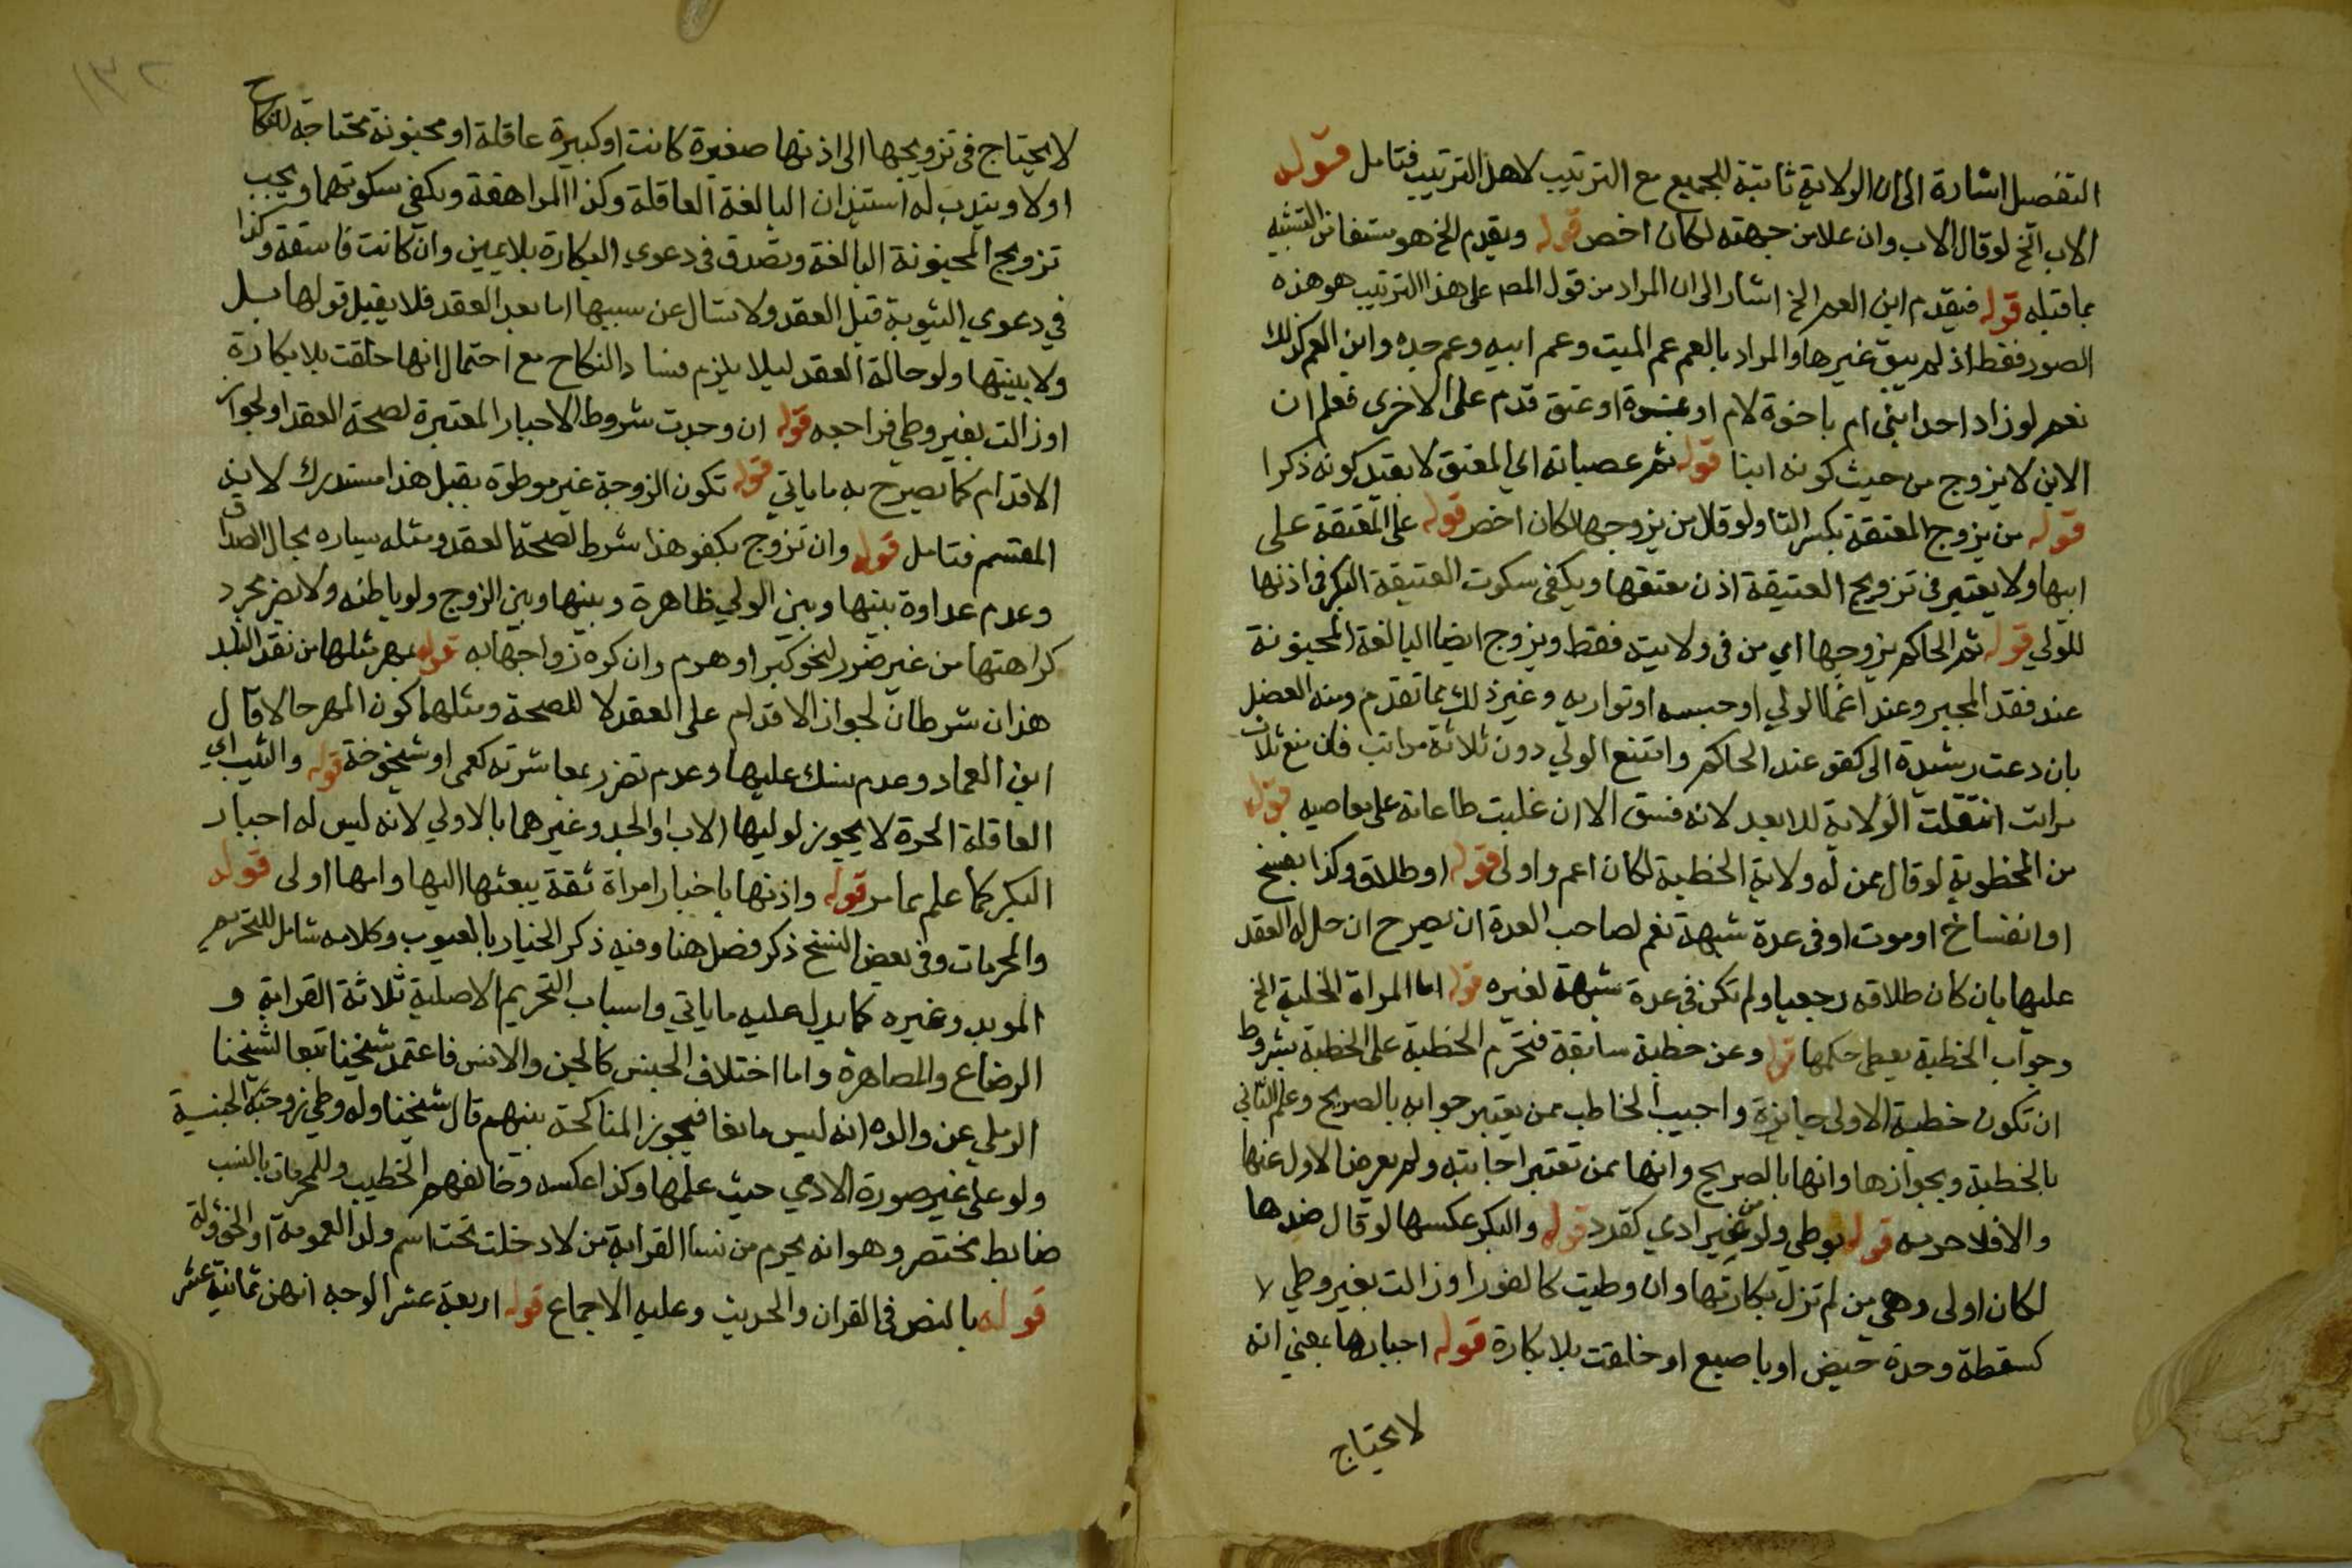 التفصيل اشارة الى ان الولاية ثابتة للجميع مع الترتيب لا هذا الترتيب فتامل قوله
الاب الخ لو قال الاب وان علا من جهته لكان اخص قوله ويقدم الخ هو مستفاد من التشبيه
بما قبله قوله فيقدم ابن العم الخ اشار الى ان المراد من قول المص على هذا الترتيب هو هذه
الصور فقط اذ لم يبق غيرها والمراد بالعم عم الميت وعم ابيه وعم جده وابن العم كذلك
نعم لو زاد احد ابني ام باخوة لام او بنوة او عتق قدم على الاخرى فعلم ان
الابن لا يزوج من حيث كونه ابنا قوله ثم عصباته اي المعتق لا بقيد كونه ذكرا
قوله من يزوج المعتقة بكسر التا ولو قال من يزوجها لكان اخص قوله على المعتقة على
ابيها ولا يعتبر في تزويج العتيقة اذن معتقها ويكفي سكوت العتيقة البكر في اذنها
للولي قوله ثم الحاكم يزوجها اي من في ولايته فقط ويزوج ايضا البالغة المجنونة
عند فقد المجبر وعند اغما الولي او حبسه او تواريه وغير ذلك مما تقدم ومنه العضل
بان دعت رشيدة الى كفو عند الحاكم وامتنع الولي دون ثلاثة مراتب فان منع ثلاث
مرات انتقلت الولاية للابعد لانه فسق الا ان غلبت طاعاته على معاصيه قوله
من المخطوبة لو قال ممن له ولاية الخطبة لكان اعم واولى قوله او طلاق وكذا بفسخ
او انفساخ او موت او في عدة شبهة نعم لصاحب العدة ان يصرح ان حل له العقد
عليها بان كان طلاقه رجعيا ولم تكن في عدة شبهة لغيره قوله اما المراة الخلية الخ
وجواب الخطبة يعطى حكمها قوله وعن خطبة سابقة فتحرم الخطبة على الخطبة بشروط
ان تكون خطبة الاولى جايزة واجيب الخاطب ممن يعتبر جوابه بالصريح وعلم الثاني
بالخطبة وبجوازها وانها بالصريح وانها ممن تعتبر اجابته ولم يعرض الاول عنها
والا فلا حرمة قوله بوطي ولو من غير ادمي كقرد قوله والبكر عكسها لو قال ضدها
لكان اولى وهي من لم تزل بكارتها وان وطيت كالغورا او زالت بغير وطي لا
كسقطة وحدة حيض او باصبع او خلقت بلا بكارة قوله اجبارها بمعنى انه
لا يحتاج
١٣٢
لا يحتاج في تزويجها الى اذنها صغيرة كانت او كبيرة عاقلة او مجنونة محتاجة للنكاح
اولا ويندب له استيذان البالغة العاقلة وكذا المراهقة ويكفي سكوتهما ويجب
تزويج المجنونة البالغة وتصدق في دعوي البكارة بلا يمين وان كانت فاسقة وكذا
في دعوي الثيوبة قبل العقد ولا تسال عن سببها اما بعد العقد فلا يقبل قولها بل
ولا بينتها ولو حالة العقد ليلا يلزم فساد النكاح مع احتمال انها خلقت بلا بكارة
او زالت بغير وطي فراجعه قوله ان وجدت شروط الاجبار المعتبرة لصحة العقد او لجواز
الاقدام كما يصرح به ما ياتي قوله تكون الزوجة غير موطوة بقبل هذا مستدرك لانه
المقسم فتامل قوله وان تزوج بكفو هذا شرط لصحة العقد ومثله يساره بحال الصداق
وعدم عداوة بينها وبين الولي ظاهرة وبينها وبين الزوج ولو باطنه ولا يضر مجرد
كراهتها من غير ضرر لنحو كبر او هرم وان كره زواجها به قوله بمهر مثلها من نقد البلد
هذان شرطان لجواز الاقدام على العقد لا للصحة ومثلهما كون المهر حالا قال
ابن العماد وعدم نسك عليها وعدم تضرر بمعاشرته كعمى او شيخوخة قوله والثيب اي
العاقلة الحرة لا يجوز لوليها الاب او الجد وغيرهما بالاولي لانه ليس له اجبار
البكر كما علم مما مر قوله واذنها باخبار امراة ثقة يبعثها اليها وامها اولى قوله
والمحرمات وفي بعض النسخ ذكر فصل هنا وفيه ذكر الخيار بالعيوب وكلامه شامل للتحريم
الموبد وغيره كما يدل عليه ما ياتي واسباب التحريم الاصلية ثلاثة القرابة و
الرضاع والمصاهرة واما اختلاف الجنس كالجن والانس فاعتمد شيخنا تبعا لشيخنا
الرملي عن والده انه ليس مانعا فيجوز المناكحة بينهم قال شيخنا وله وطي زوجته الجنسية
ولو على غير صورة الادمي حيث علمها وكذا عكسه وخالفهم الخطيب وللمحرمات بالنسب
ضابط مختصر وهو انه يحرم من نسا القرابة من لا دخلت تحت اسم ولد العمومة او الخئولة
قوله بالنص في القران والحديث وعليه الاجماع قوله اربعة عشر الوجه انهن ثمانية عشر